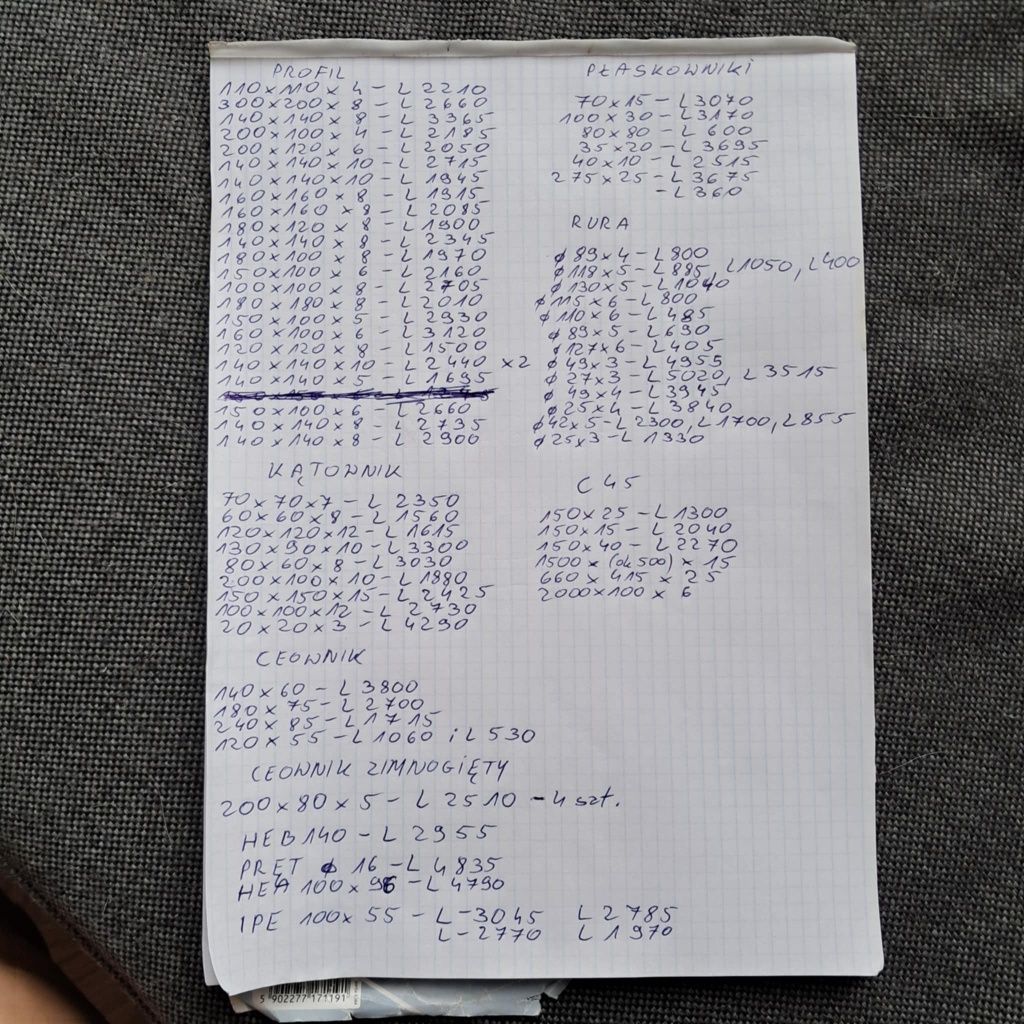 PROFIL
110 x 110 x 4 - L 2210
300 x 200 x 8 - L 2660
140 x 140 x 8 - L 3365
200 x 100 x 4 - L 2185
200 x 120 x 6 - L 2050
140 x 140 x 10 - L 2715
140 x 140 x 10 - L 1945
160 x 160 x 8 - L 1915
160 x 160 x 8 - L 2085
180 x 120 x 8 - L 1900
140 x 140 x 8 - L 2345
180 x 100 x 8 - L 1970
150 x 100 x 6 - L 2160
100 x 100 x 8 - L 2705
180 x 180 x 8 - L 2010
150 x 100 x 5 - L 2930
160 x 100 x 6 - L 3120
120 x 120 x 8 - L 1500
140 x 140 x 10 - L 2440 x2
140 x 140 x 5 - L 1695
150 x 100 x 6 - L 2660
140 x 140 x 8 - L 2735
140 x 140 x 8 - L 2900
KĄTOWNIK
70 x 70 x 7 - L 2350
60 x 60 x 8 - L 1560
120 x 120 x 12 - L 1615
130 x 90 x 10 - L 3300
80 x 60 x 8 - L 3030
200 x 100 x 10 - L 1880
150 x 150 x 15 - L 2425
100 x 100 x 12 - L 2730
20 x 20 x 3 - L 4290
CEOWNIK
140 x 60 - L 3800
180 x 75 - L 2700
240 x 85 - L 1715
120 x 55 - L 1060 i L 530
CEOWNIK ZIMNOGIĘTY
200 x 80 x 5 - L 2510 - 4 szt.
HEB 140 - L 2955
PRĘT φ 16 - L 4835
HEA 100 x 96 - L 4790
IPE 100 x 55 - L-3045 L 2785
L-2770 L 1970
PŁASKOWNIKI
70 x 15 - L 3070
100 x 30 - L 3170
80 x 80 - L 600
35 x 20 - L 3695
40 x 10 - L 2515
275 x 25 - L 3675
- L 360
RURA
φ 89 x 4 - L 800
φ 118 x 5 - L 885, L 1050, L 400
φ 130 x 5 - L 1040
φ 115 x 6 - L 800
φ 110 x 6 - L 485
φ 89 x 5 - L 690
φ 127 x 6 - L 405
φ 49 x 3 - L 4955
φ 27 x 3 - L 5020, L 3515
φ 49 x 4 - L 3945
φ 25 x 4 - L 3840
φ 42 x 5 - L 2300, L 1700, L 855
φ 25 x 3 - L 1330
C 45
150 x 25 - L 1300
150 x 15 - L 2040
150 x 40 - L 2270
1500 x (ok 500) x 15
660 x 415 x 25
2000 x 100 x 6
5 902277 171191